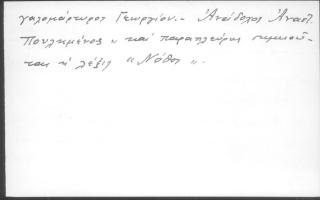 γαλομάρτυρος Γεωργίου.- Ἀνάδοχος Ἀναστ.
Πουλημένος " καὶ παραπλεύρως σημειοῦ-
ται ἡ λέξις " Νόθος ".